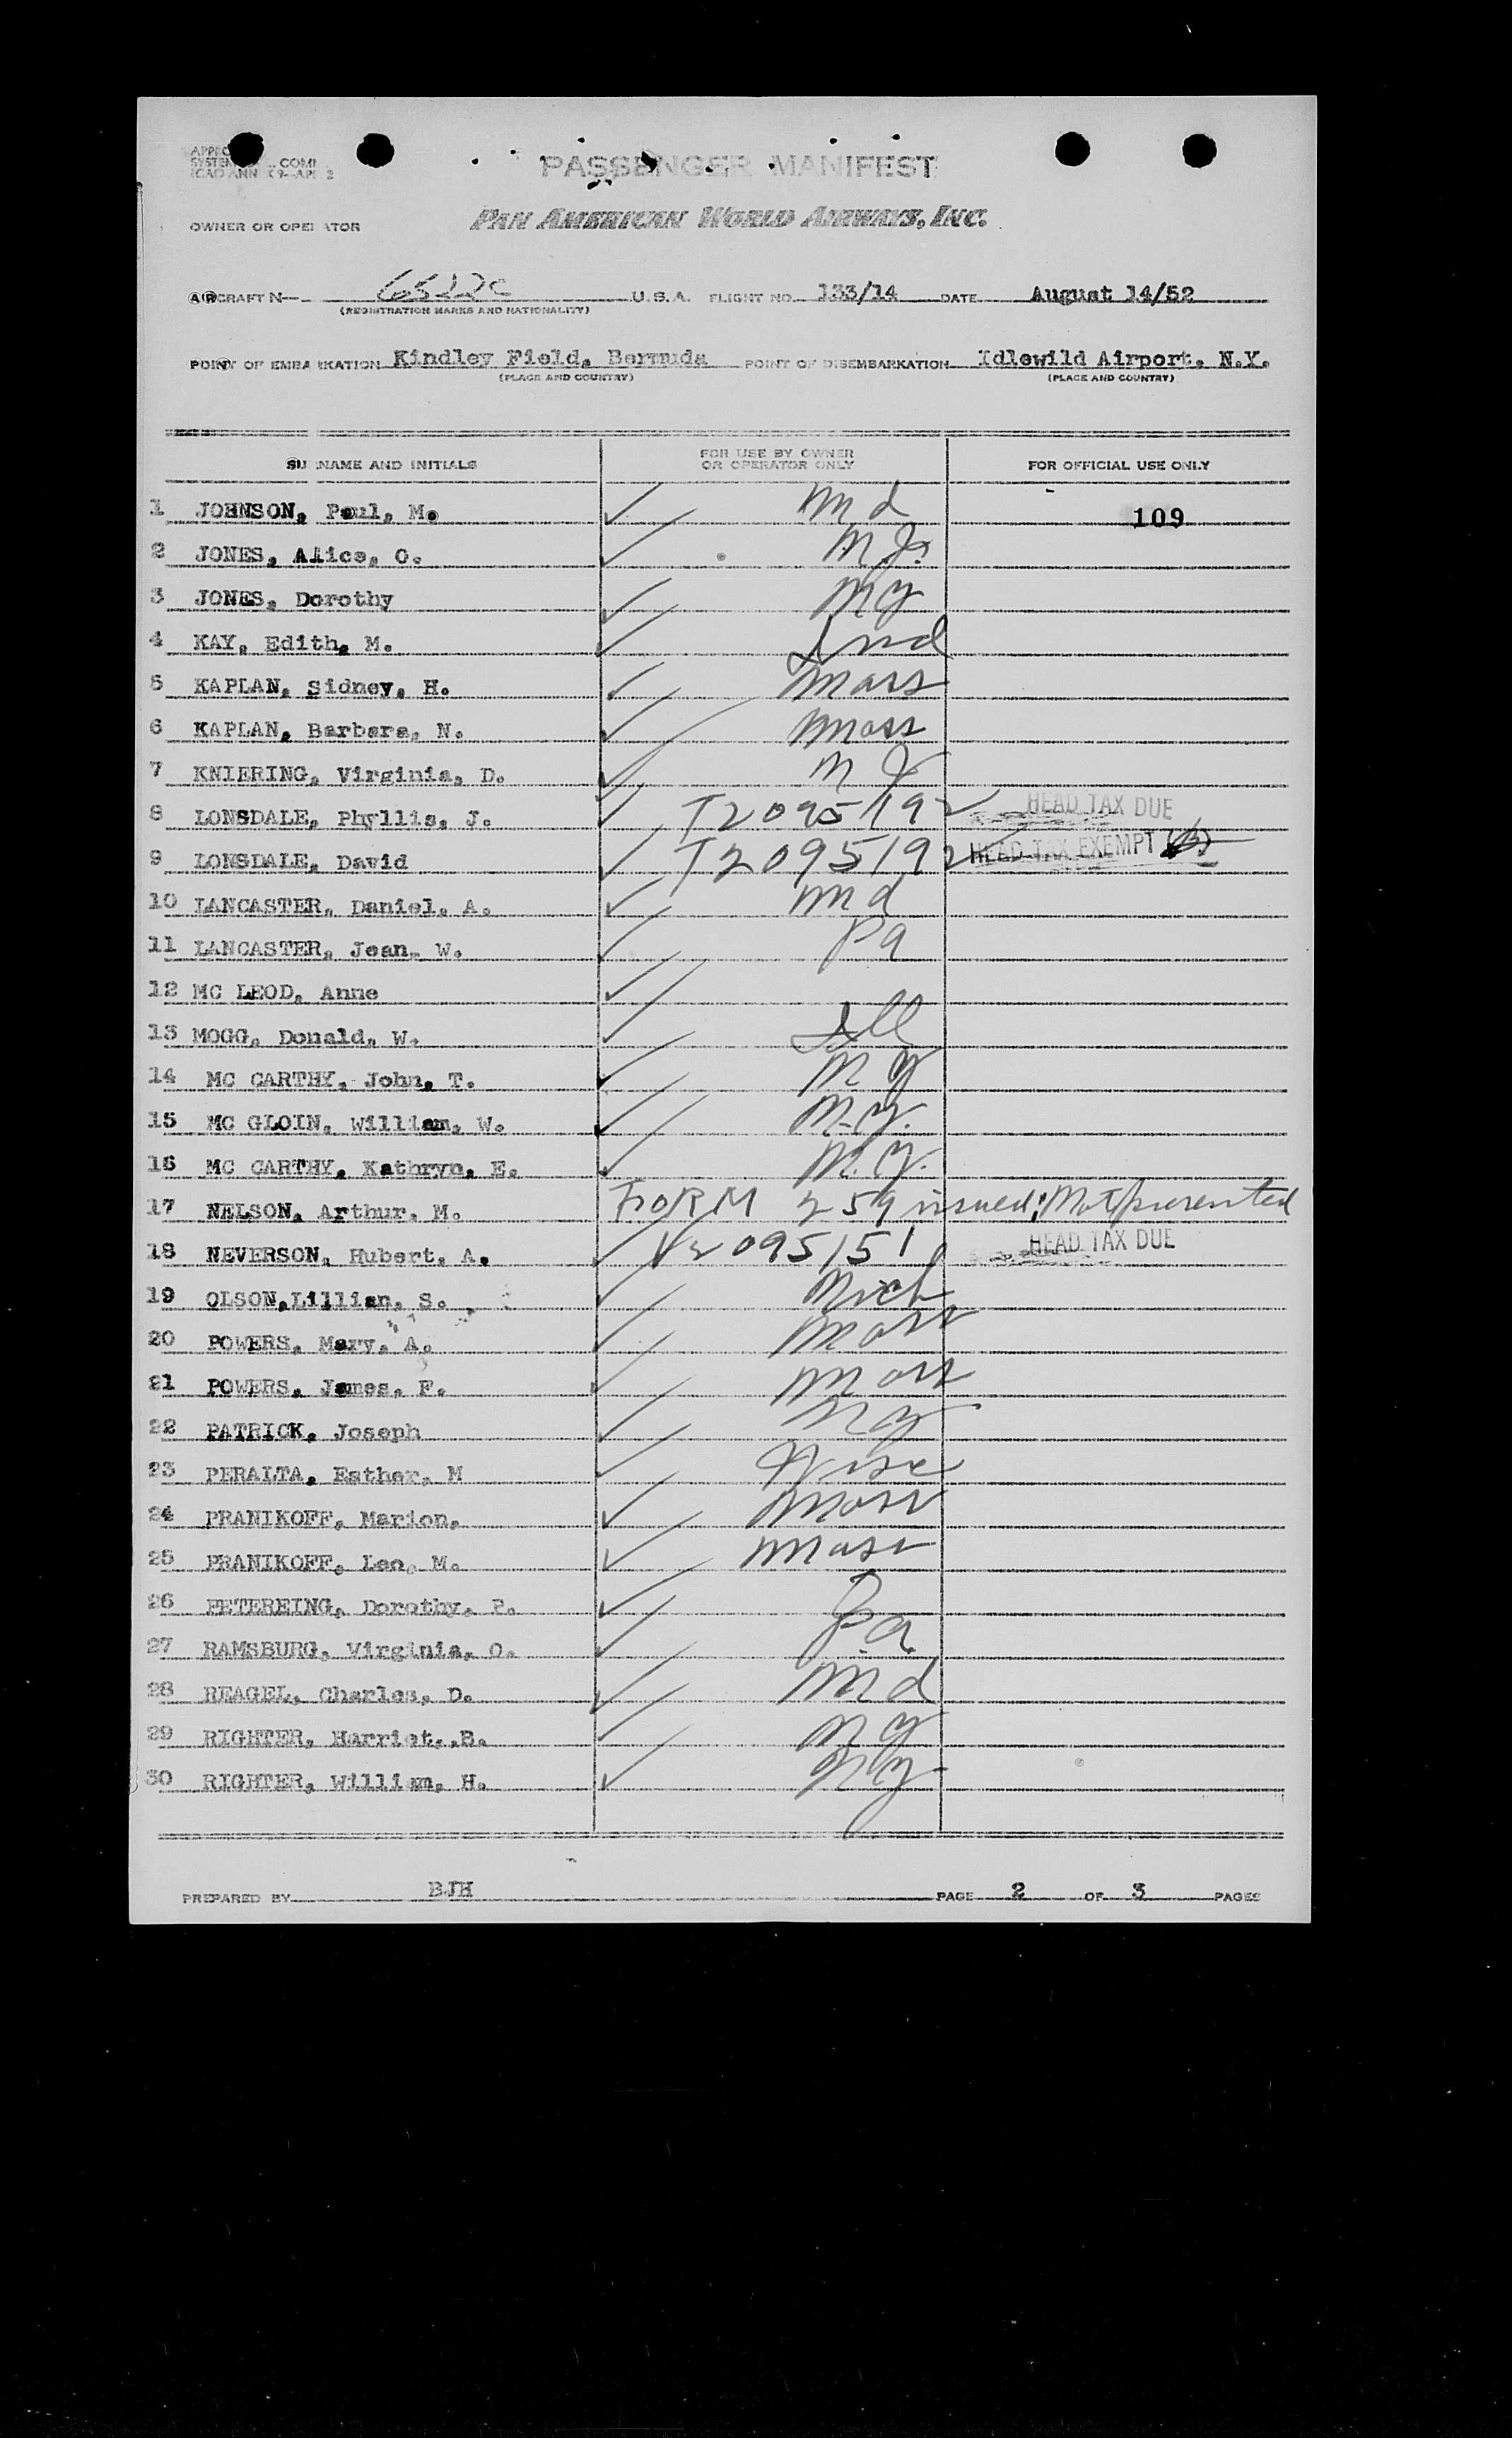 PASSENGER MANIFEST
PAN AMERICAN WORLD AIRWAYS, INC.
OWNER OR OPERATOR
AIRCRAFT N— 6522C U.S.A. FLIGHT NO. 133/14 DATE August 14/52
(REGISTRATION MARKS AND NATIONALITY)
POINT OF EMBARKATION Kindley Field, Bermuda POINT OF DISEMBARKATION Idlewild Airport, N.Y.
(PLACE AND COUNTRY) (PLACE AND COUNTRY)
SURNAME AND INITIALS FOR USE BY OWNER OR OPERATOR ONLY FOR OFFICIAL USE ONLY
1 JOHNSON, Paul, M. ✓ Md 109
2 JONES, Alice, O. ✓ N.J.
3 JONES, Dorothy ✓ NY
4 KAY, Edith, M. ✓ Ind
5 KAPLAN, Sidney, H. ✓ Mass
6 KAPLAN, Barbara, N. ✓ Mass
7 KNIERING, Virginia, D. ✓ N J
8 LONSDALE, Phyllis, J. ✓ T2095192 HEAD TAX DUE
9 LONSDALE, David ✓ T2095192 HEAD TAX EXEMPT
10 LANCASTER, Daniel, A. ✓ Md
11 LANCASTER, Jean, W. ✓ Pa
12 MC LEOD, Anne ✓
13 MOGG, Donald, W. ✓ Ill
14 MC CARTHY, John, T. ✓ N Y
15 MC GLOIN, William, W. ✓ N.Y.
16 MC CARTHY, Kathryn, E. ✓ N.Y.
17 NELSON, Arthur, M. FORM 259 issued; Not presented
18 NEVERSON, Hubert, A. ✓ V2095151 HEAD TAX DUE
19 OLSON, Lillian, S. ✓ Mich
20 POWERS, Mary, A. ✓ Mass
21 POWERS, James, F. ✓ Mass
22 PATRICK, Joseph ✓ NY
23 PERALTA, Esther, M ✓ Wisc
24 PRANIKOFF, Marion, ✓ Mass
25 PRANIKOFF, Leo, M. ✓ Mass
26 PETEREING, Dorothy, P. ✓
27 RAMSBURG, Virginia, O. ✓ Pa.
28 REAGEL, Charles, D. ✓ Md
29 RIGHTER, Harriet,.B. ✓ NY
30 RIGHTER, William, H. ✓ NY
PREPARED BY BJH PAGE 2 OF 3 PAGES